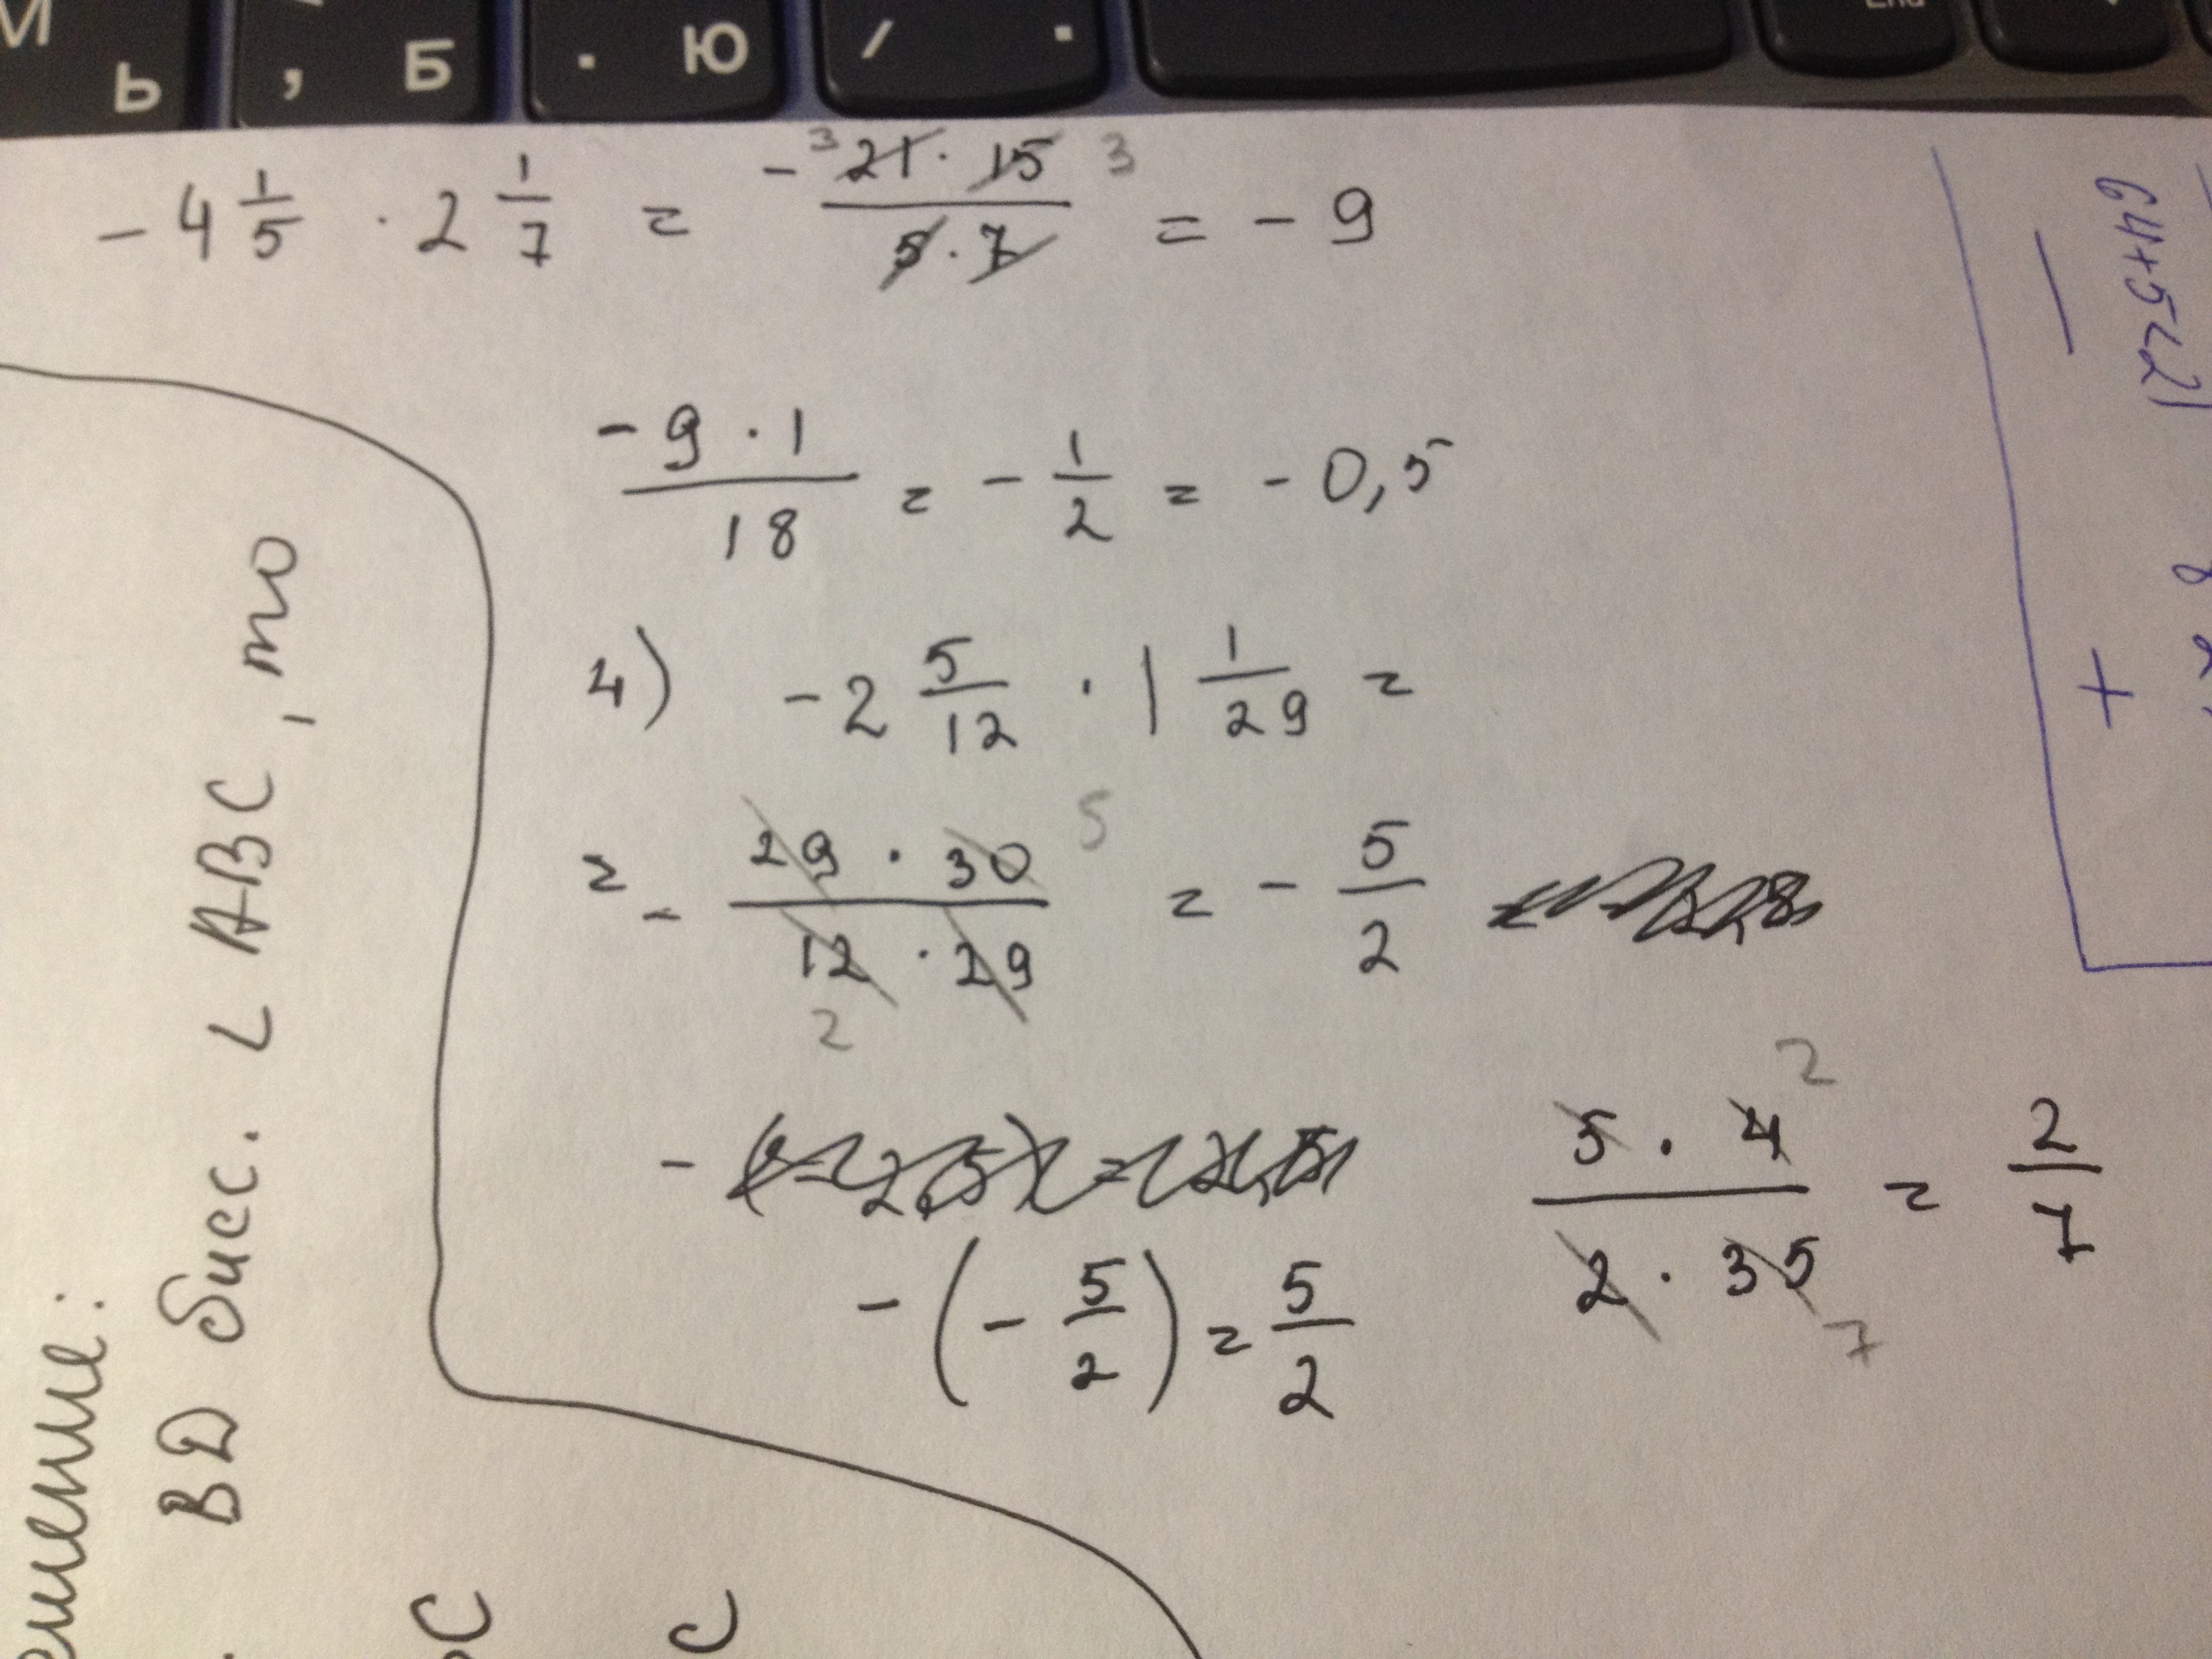 М Ь , Б . Ю / . End
-4 1/5 · 2 1/7 = - 21 · 15 / 5 · 7 = - 9
3 3
-9 · 1 / 18 = - 1/2 = - 0,5
4) -2 5/12 · 1 1/29 =
= - 29 · 30 / 12 · 29 = - 5/2
5
2
-
- (- 5/2) = 5/2
5 · 4 / 2 · 35 = 2/7
2
7
ешение:
BD бисс. ∠ ABC, то
С
64+5221
—
+